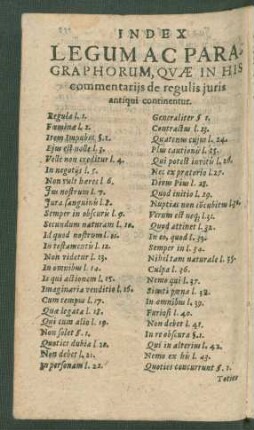 INDEX
LEGUM AC PARA-
GRAPHORUM, QVÆ IN HIS
commentarijs de regulis juris
antiqui continentur.
Regula l. 1.
Fœminæ l. 2.
Item Impubes §. 1.
Ejus est nolle l. 3.
Velle non creditur l. 4.
In negotijs l. 5.
Non vult heres l. 6.
Jus nostrum l. 7.
Jura sanguinis l. 8.
Semper in obscuris l. 9.
Secundum naturam l. 10.
Id quod nostrum l. 11.
In testamentis l. 12.
Non videtur l. 13.
In omnibus l. 14.
Is qui actionem l. 15.
Imaginaria venditio l. 16.
Cum tempus l. 17.
Quæ legata l. 18.
Qui cum alio l. 19.
Non solet §. 1.
Quoties dubia l. 20.
Non debet l. 21.
In personam l. 22.
Generaliter §. 1.
Contractus l. 23.
Quatenus cujus l. 24.
Plus cautionis l. 25.
Qui potest invitis l. 26.
Nec ex prætorio l. 27.
Divus Pius l. 28.
Quod initio l. 29.
Nuptias non cõcubitus l. 30.
Verum est neq; l. 31.
Quod attinet l. 32.
In eo, quod l. 33.
Semper in l. 34.
Nihil tam naturale l. 35.
Culpa l. 36.
Nemo qui l. 37.
Sicuti pœna l. 38.
In omnibus l. 39.
Furiosi l. 40.
Non debet l. 41.
In re obscura §. 1.
Qui in alterius l. 42.
Nemo ex his l. 43.
Quoties concurrunt §. 1.
Toties